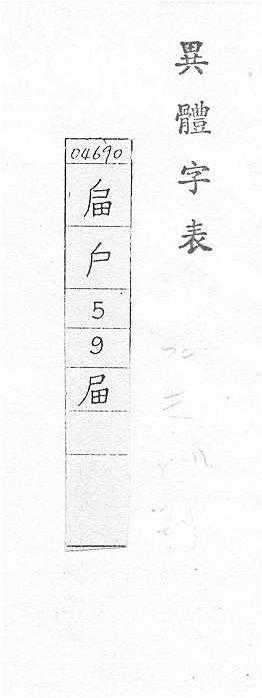 異體字表
04690
戶
5
9
届